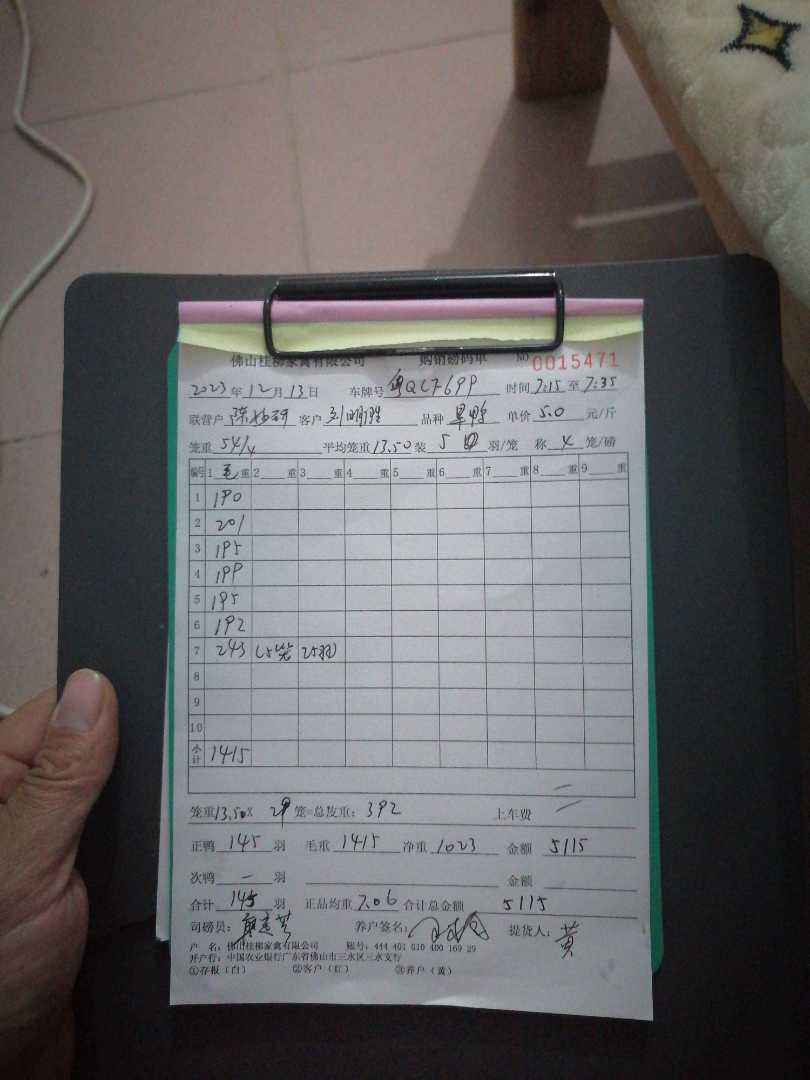 佛山桂柳家禽有限公司 购销磅码单 NO 0015471
2023年12月13日 车牌号 粤QCF699 时间 7:15 至 7:35
联营户 客户 刘明胜 品种 旱鸭 单价 5.0 元/斤
笼重 54/4 平均笼重 13.50 装 5 羽/笼 称 4 笼/磅
编号 1 毛 重 2 重 3 重 4 重 5 重 6 重 7 重 8 重 9 重
1 190
2 201
3 195
4 199
5 195
6 192
7 243 (5笼 25羽)
8
9
10
小计 1415
笼重 13.50 X 29 笼=总笼重: 392 上车费
正鸭 145 羽 毛重 1415 净重 1023 金额 5115
次鸭 — 羽 金额
合计 145 羽 正品均重 7.06 合计总金额 5115
司磅员: 养户签名: 提货人: 黄
户 名: 佛山桂柳家禽有限公司 账号: 444 401 010 400 169 29
开户行: 中国农业银行广东省佛山市三水区三水支行
①存根(白) ②客户(红) ③养户(黄)